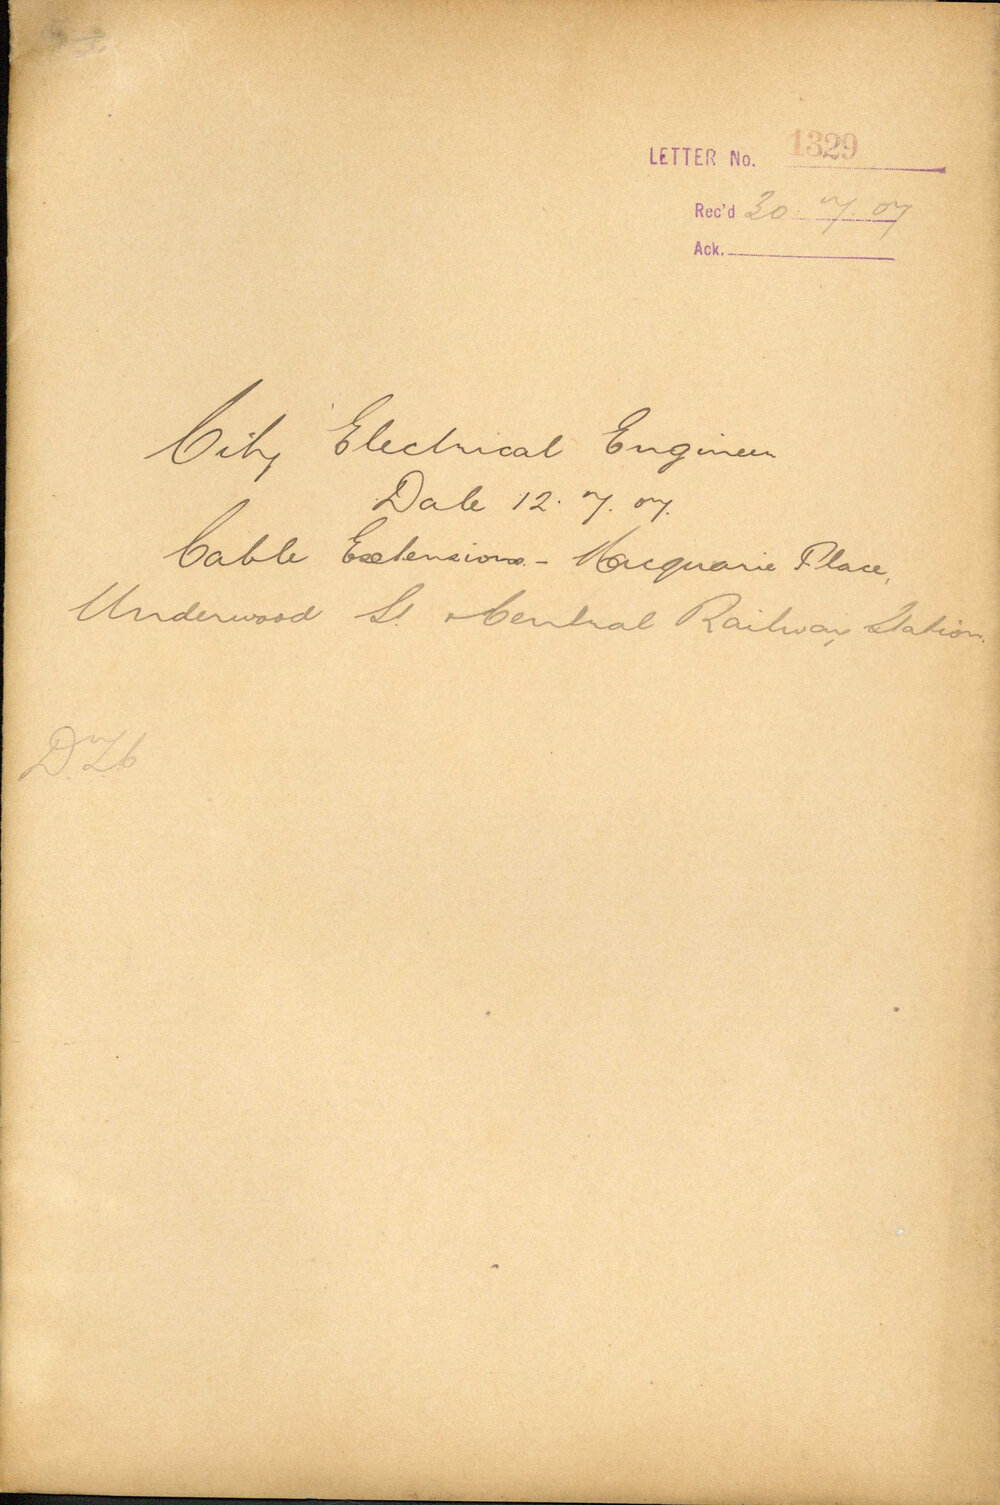 LETTER No. 1329
Rec'd 30. 7. 07
Ack.
City Electrical Engineer
Date 12. 7. 07.
Cable Extensions - Macquarie Place,
Underwood St. & Central Railway Station.